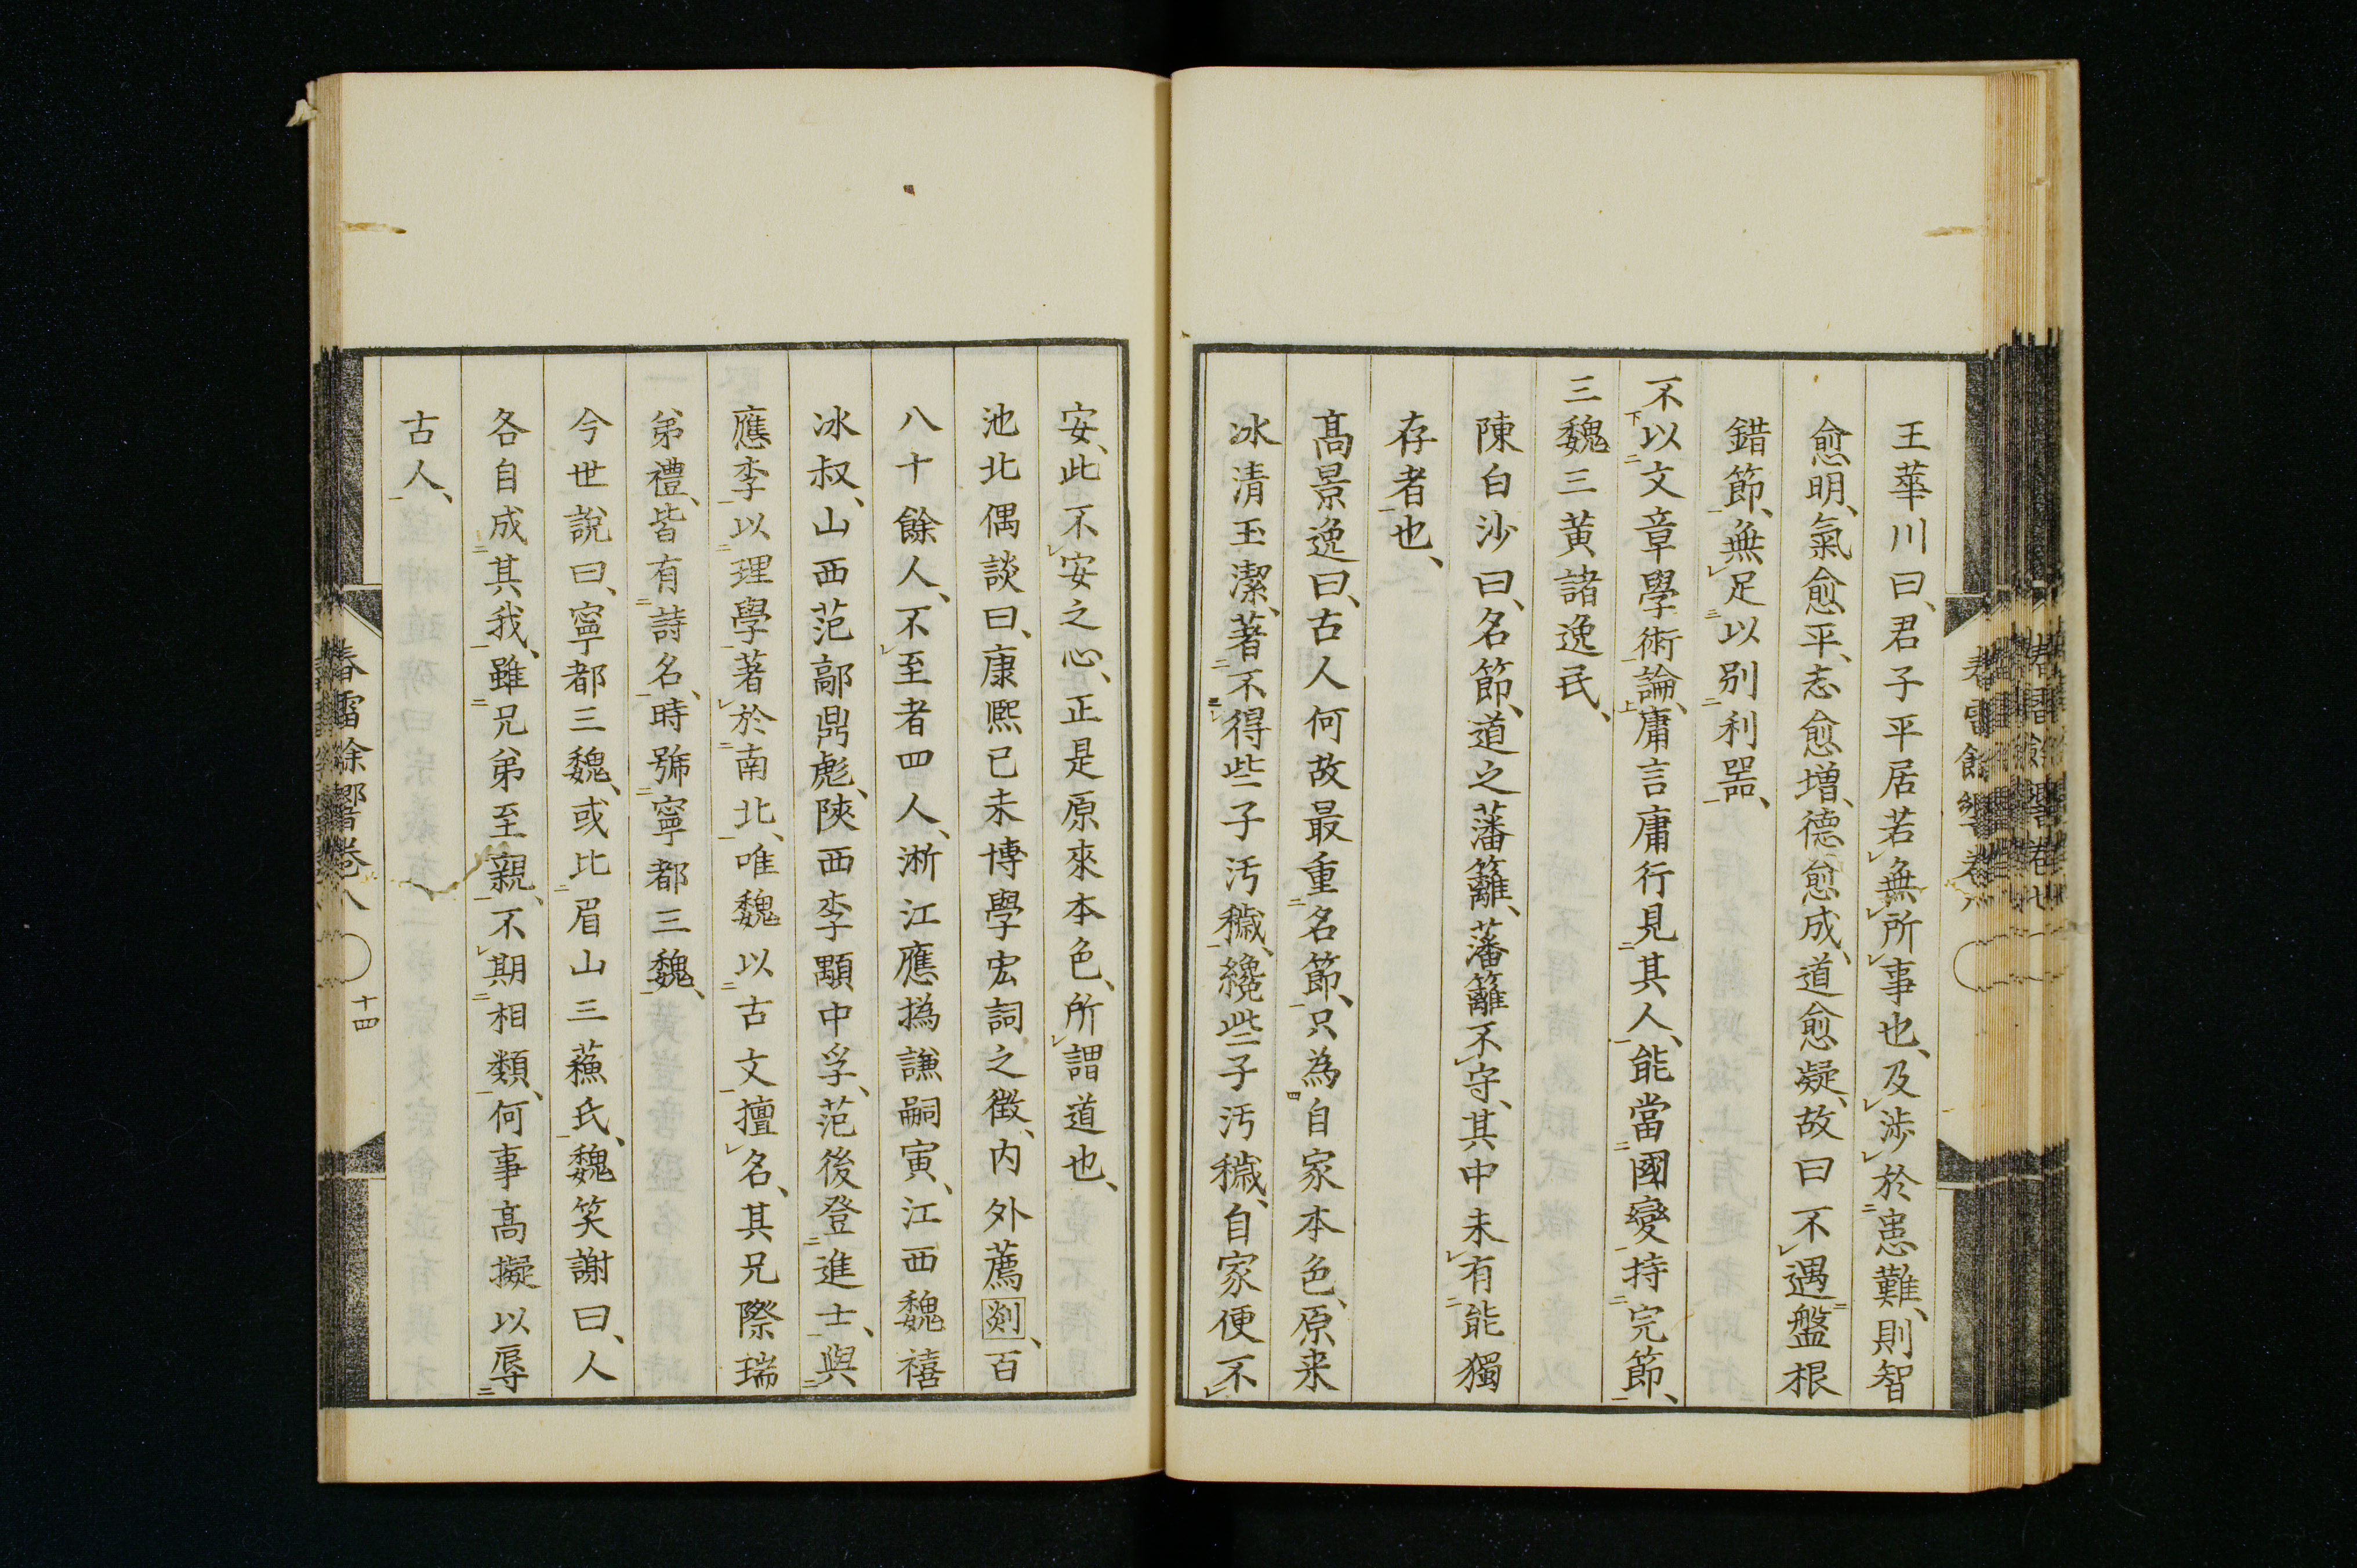 王華川曰、君子平居若無所事也、及涉於患難、則智
愈明、氣愈平、志愈增、德愈成、道愈凝、故曰不遇盤根
錯節、無足以別利器、
不以文章學術論、庸言庸行見其人、能當國變持完節、
三魏三黃諸逸民、
陳白沙曰、名節、道之藩籬、藩籬不守、其中未有能獨
存者也、
高景逸曰、古人何故最重名節、只為自家本色、原來
冰清玉潔、著不得些子汚穢、纔些子汚穢、自家便不
安、此不安之心、正是原來本色、所謂道也、
池北偶談曰、康熙己未博學宏詞之徵、內外薦剡、百
八十餘人、不至者四人、浙江應撝謙嗣寅、江西魏禧
冰叔、山西范鄗鼎彪、陝西李顒中孚、范後登進士、與
應李以理學著於南北、唯魏以古文擅名、其兄際瑞
弟禮、皆有詩名、時號寧都三魏、
今世說曰、寧都三魏、或比眉山三蘇氏、魏笑謝曰、人
各自成其我、雖兄弟至親、不期相類、何事高擬以辱
古人、
春雷餘響卷八
十四